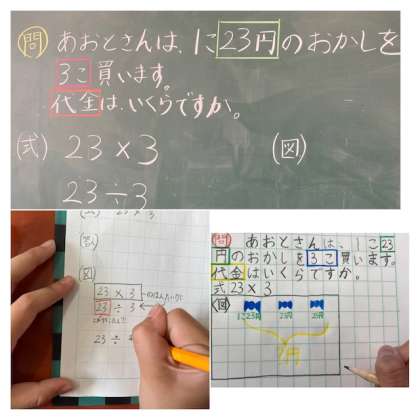 問 あおとさんは、1こ23円のおかしを
3こ買います。
代金は、いくらですか。
(式) 23×3
(図)
23÷3
(答)
(図)
23 × 3
23 ÷ 3
23 ÷
問 あおとさんは、1こ23
円のおかしを3こ買います。
代金はいくらですか。
式 23×3
(図)
1こ23円 23円 23円
?円